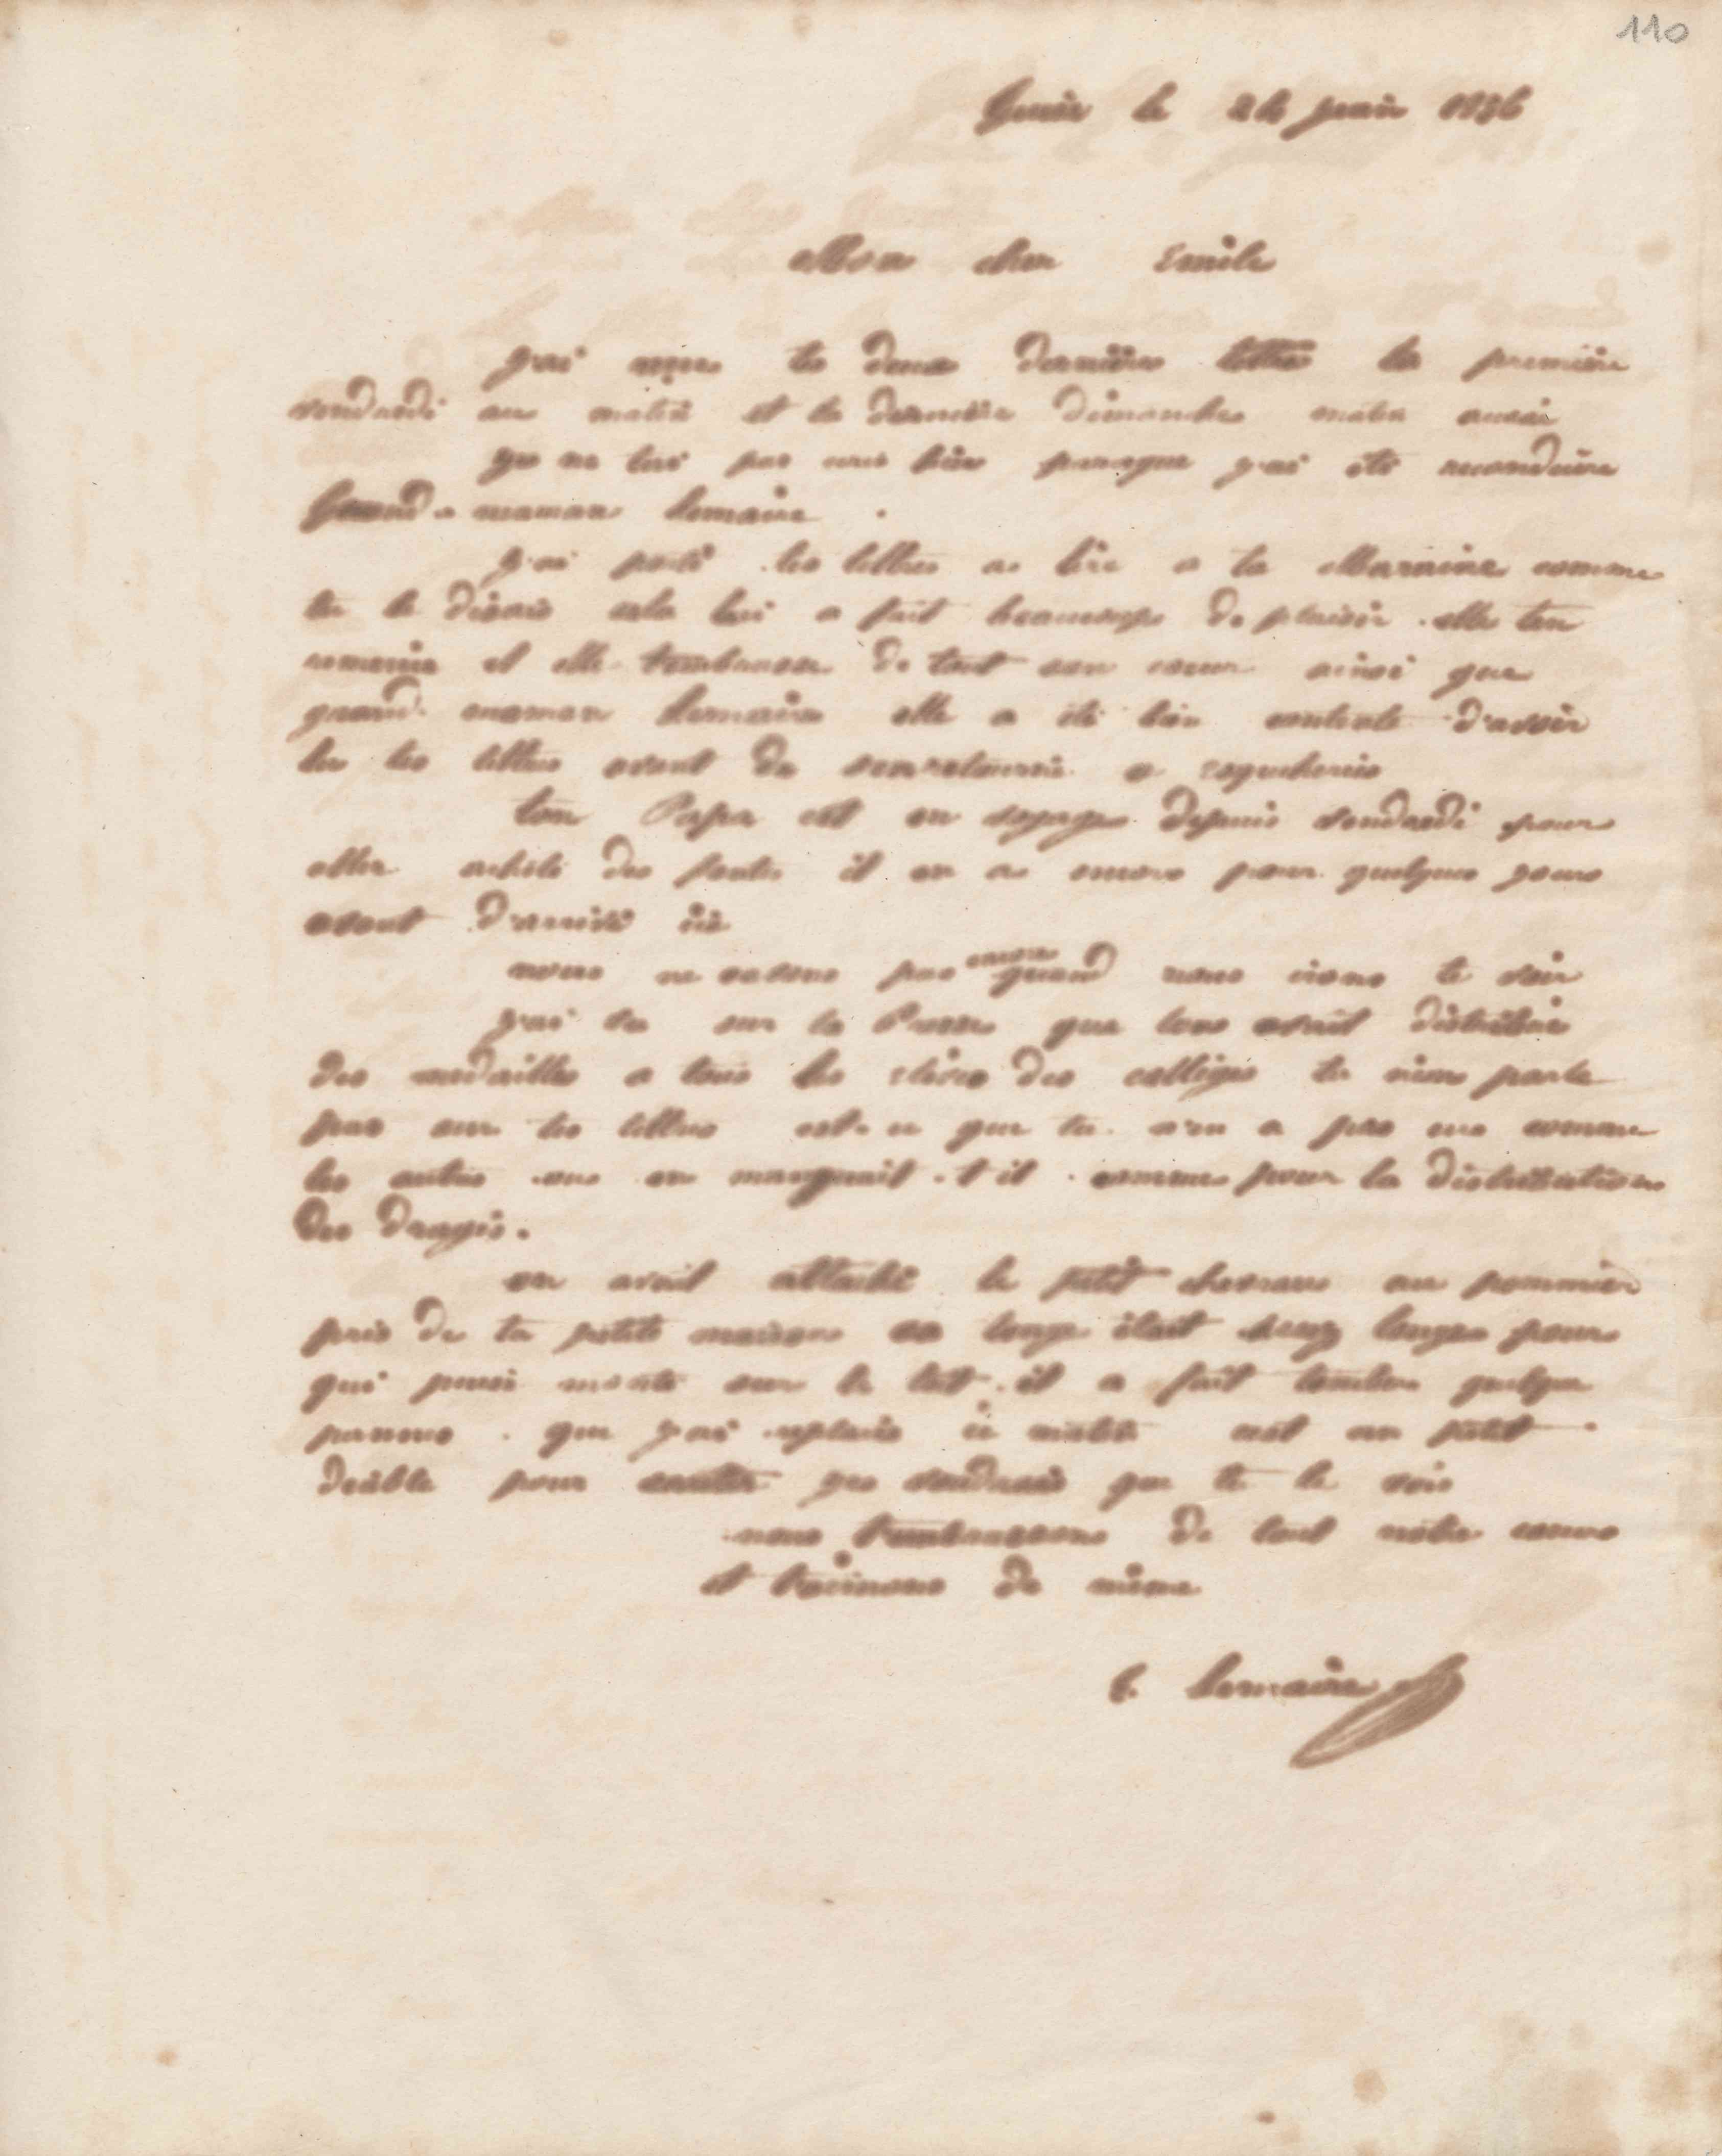 110
Guise le 24 juin 1856
Mon cher Emile
j'ai reçu tes deux dernière lettre la première
vendardi au matin et la dernière dimanche matin aussi
je ne tai pas ecris hier parceque j'ai été reconduire
Grand-maman Lemaire.
j'ai porté tes lettres a lire a ta Marraine comme
tu le disais cela lui a fait beaucoup de plaisir. elle ten
remercie et elle tembrasse de tout son coeur ainsi que
grand maman Lemaire elle a été bien contente d'avoir
lu tes lettres avant de senretourné a esquehéries
ton Papa est en voyage depuis vendardi pour
aller acheté des fontes il en a encore pour quelques jours
avant d'arrivé ici
nous ne savons pas encore quand nous irons te voir
j'ai vu sur la Presse que lons avait distribué
des medailles a tous les élèves des collèges tu n'en parle
pas sur tes lettres est-ce que tu n'en a pas eu comme
les autres ou en manquait-t-il comme pour la distribution
des dragés.
on avait attaché le petit chevraux au pommier
près de ta petite maison sa longe était assez longue pour
qui puisse monté sur le toit. il a fait tomber quelque
pannes. que j'ai replacé ce matin cest un petit
deable pour sauter je voudrais que tu le vois
nous tembrassons de tout notre coeur
et taimons de même
E. Lemaire